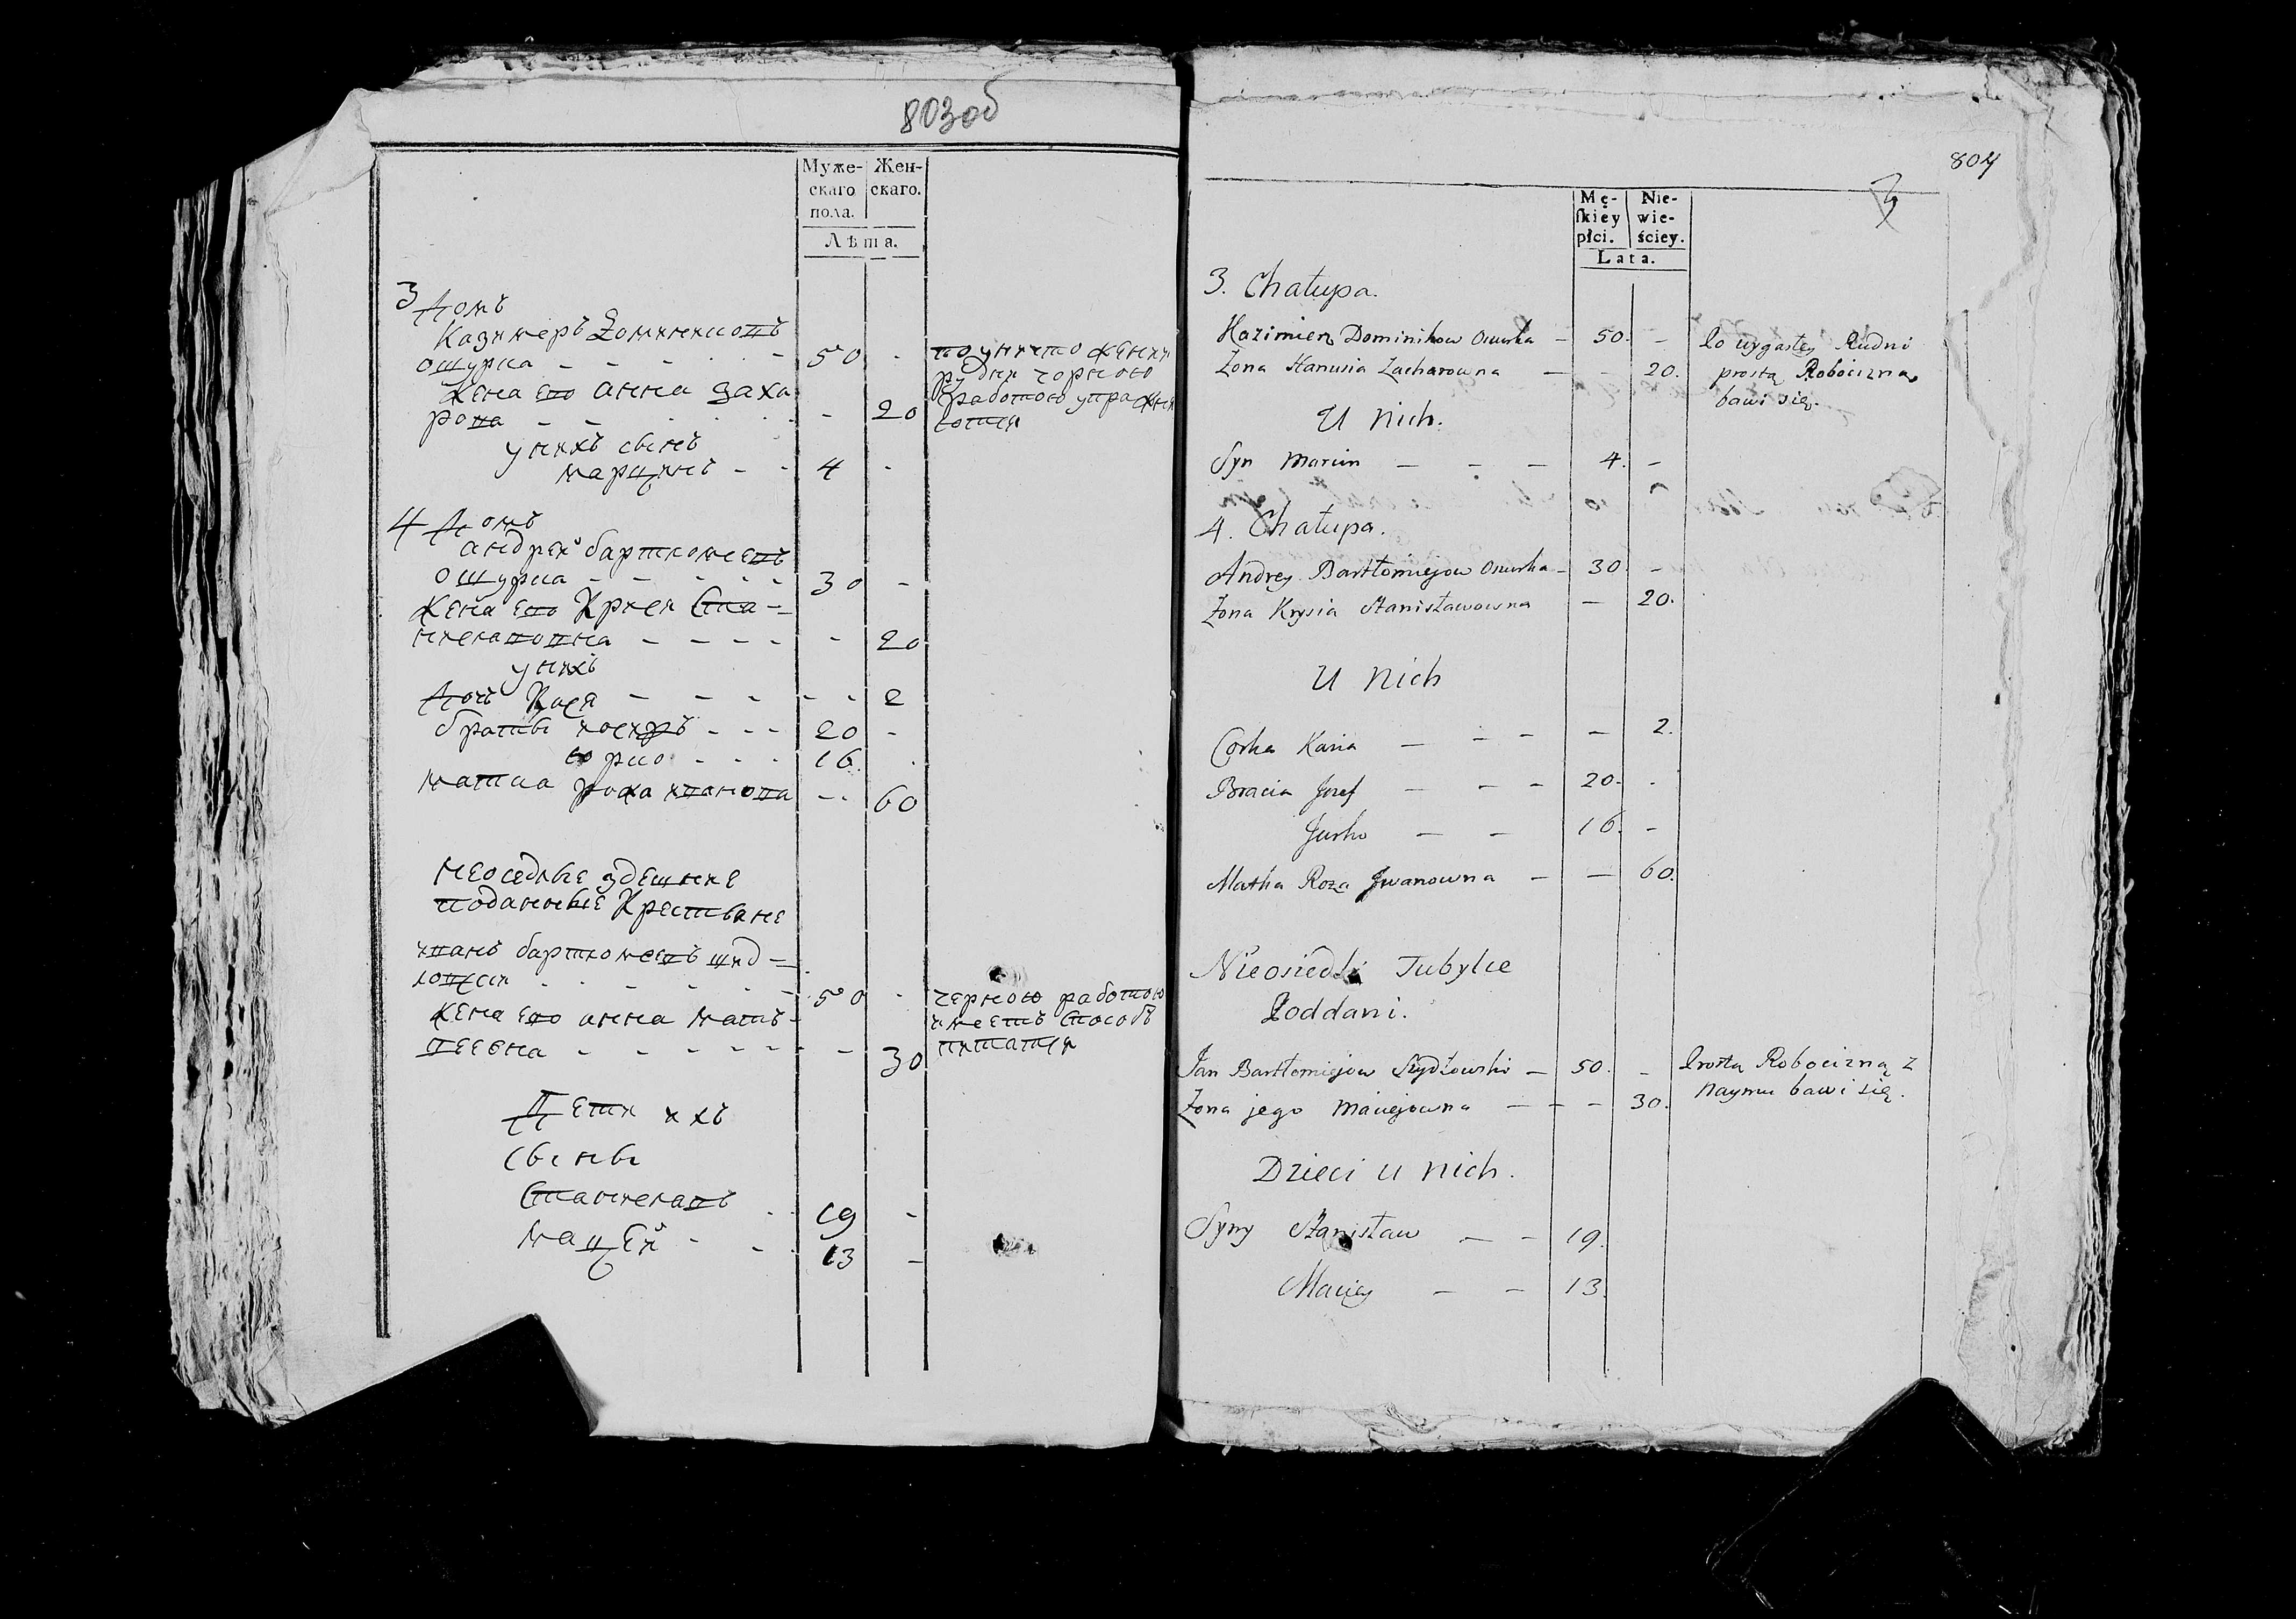 803об
Муже- Жен-
скаго скаго.
пола.
Лѣта.
3 домъ
Казимеръ Доминиковъ
ошурка - - - - 50 - по уничтоженіи
рудни чорною
жена его анна заха
рова - - - - 20 работою упражня
ются
у нихъ сынъ
марцинъ - - 4 -
4 домъ
андрей бартломеевъ
ошурка - - - - 30 -
жена его Крися Ста-
ниславовна - - - - - 20
у нихъ
дочь Кася - - - - - 2
братьи иосифъ - - - 20 -
юрко - - - 16 .
матка рожа иванова - - 60
неоседлые здешние
поданные Крестьяне
иванъ бартломеевъ шид-
ловски - - - - - 50 - черною работою
имеетъ способъ
жена его анна матъ-
веевна - - - - - - - 30 питатся
Дети ихъ
сыны
Станиславъ - 19 -
мацей - - 13 -
804
3
Mę- Nie-
ſkiey wie-
płci. ściey.
Lata.
3. Chałupa.
Kazimierz Dominikow Osurka - 50. - Po wygasłey Rudni
Żona Hanusia Zacharowna - - 20. prostą Robocizną
bawi się.
U nich.
Syn Marcin - - - 4. -
4. Chałupa.
Andrey Bartłomiejow Osurka - 30. -
Żona Krysia Stanisławowna - 20.
U nich
Corka Kasia - - - - 2.
Bracia Jozef - - - 20. -
Jurko - - 16. -
Matka Roza Jwanowna - - 60.
Nieosiedli Tubylce
Poddani.
Jan Bartłomiejow Szydłowski - 50. - Prostą Robocizną z
Naymu bawi się.
Żona jego Maciejowna - - - 30.
Dzieci u nich.
Syny Stanisław - - 19.
Maciey - - 13.